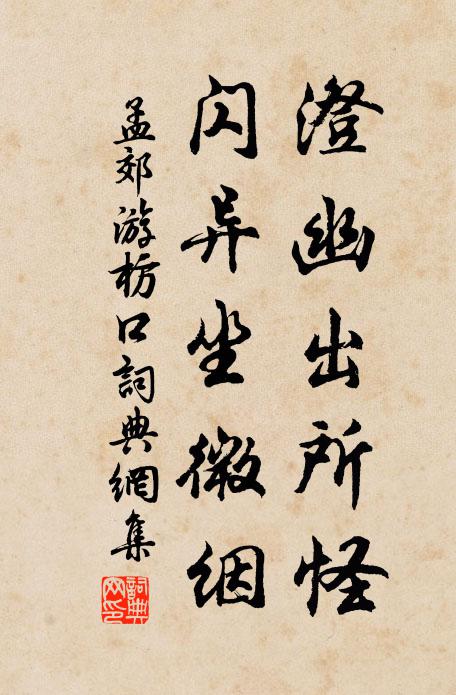 澄幽出所怪
闪异坐微絪
孟郊游枋口詞典網集
詞典網印